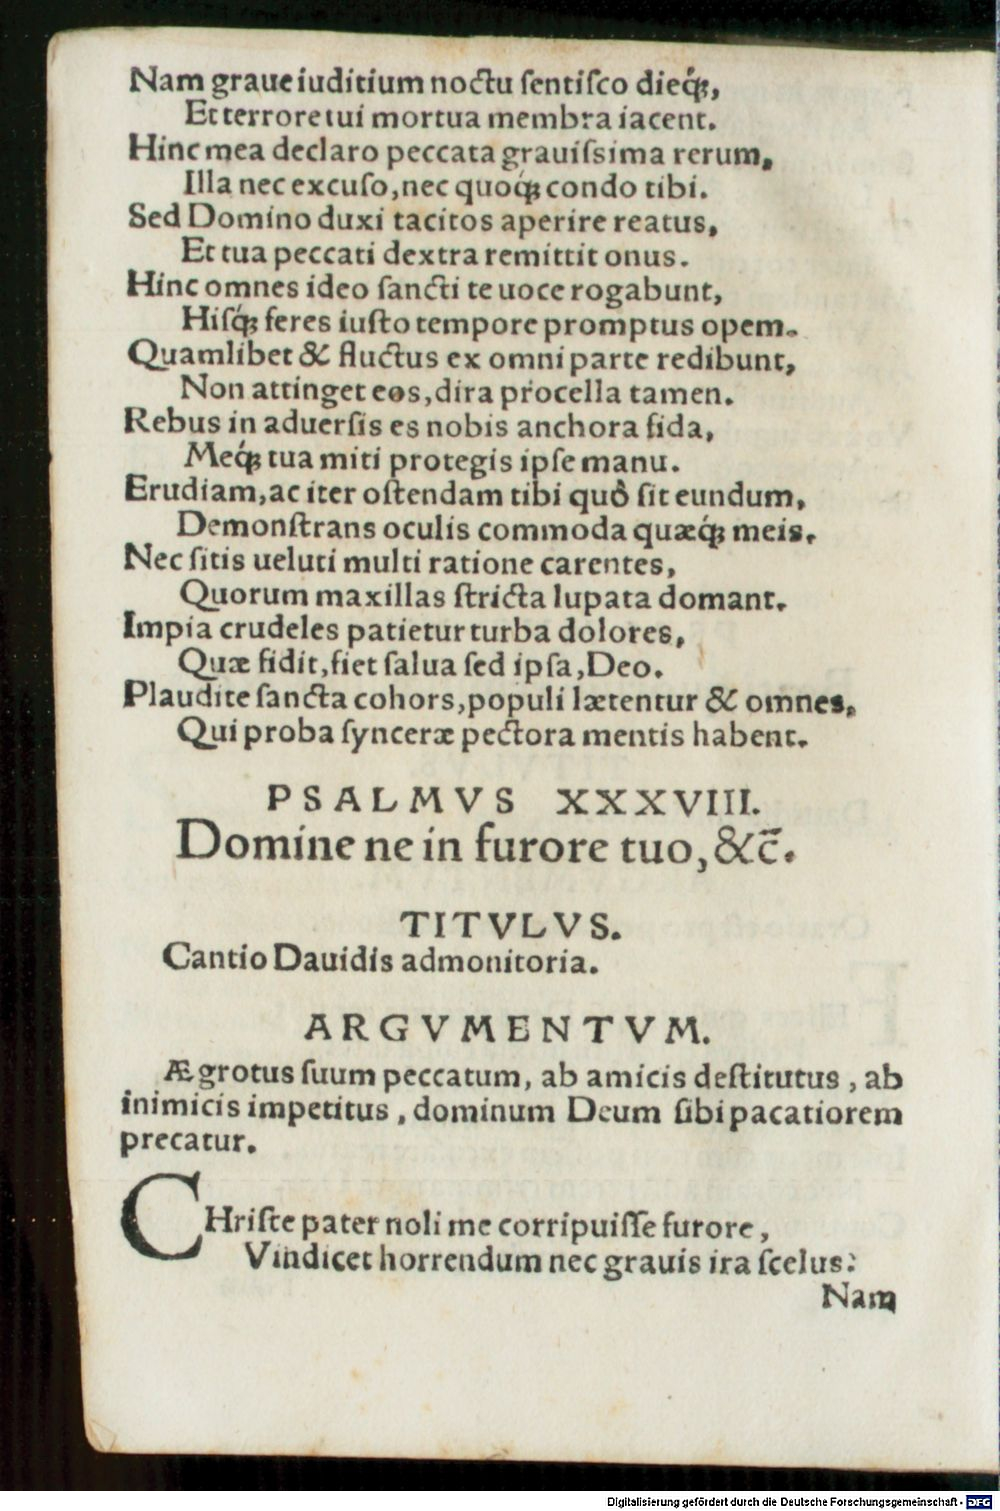 Nam graue iuditium noctu ſentiſco dieq́ꝫ,
Et terrore tui mortua membra iacent.
Hinc mea declaro peccata grauiſsima rerum,
Illa nec excuſo, nec quoq́ꝫ condo tibi.
Sed Domino duxi tacitos aperire reatus,
Et tua peccati dextra remittit onus.
Hinc omnes ideo ſancti te uoce rogabunt,
Hiſq́ꝫ feres iuſto tempore promptus opem.
Quamlibet & fluctus ex omni parte redibunt,
Non attinget eos, dira procella tamen.
Rebus in aduerſis es nobis anchora fida,
Meq́ꝫ tua miti protegis ipſe manu.
Erudiam, ac iter oſtendam tibi quò ſit eundum,
Demonſtrans oculis commoda quæq́ꝫ meis.
Nec ſitis ueluti multi ratione carentes,
Quorum maxillas ſtricta lupata domant.
Impia crudeles patietur turba dolores,
Quæ fidit, fiet ſalua ſed ipſa, Deo.
Plaudite ſancta cohors, populi lætentur & omnes,
Qui proba ſynceræ pectora mentis habent.
PSALMVS XXXVIII.
Domine ne in furore tuo, &c̄.
TITVLVS.
Cantio Dauidis admonitoria.
ARGVMENTVM.
Ægrotus ſuum peccatum, ab amicis deſtitutus, ab
inimicis impetitus, dominum Deum ſibi pacatiorem
precatur.
CHriſte pater noli me corripuiſſe furore,
Vindicet horrendum nec grauis ira ſcelus:
Nam
Digitalisierung gefördert durch die Deutsche Forschungsgemeinschaft - DFG